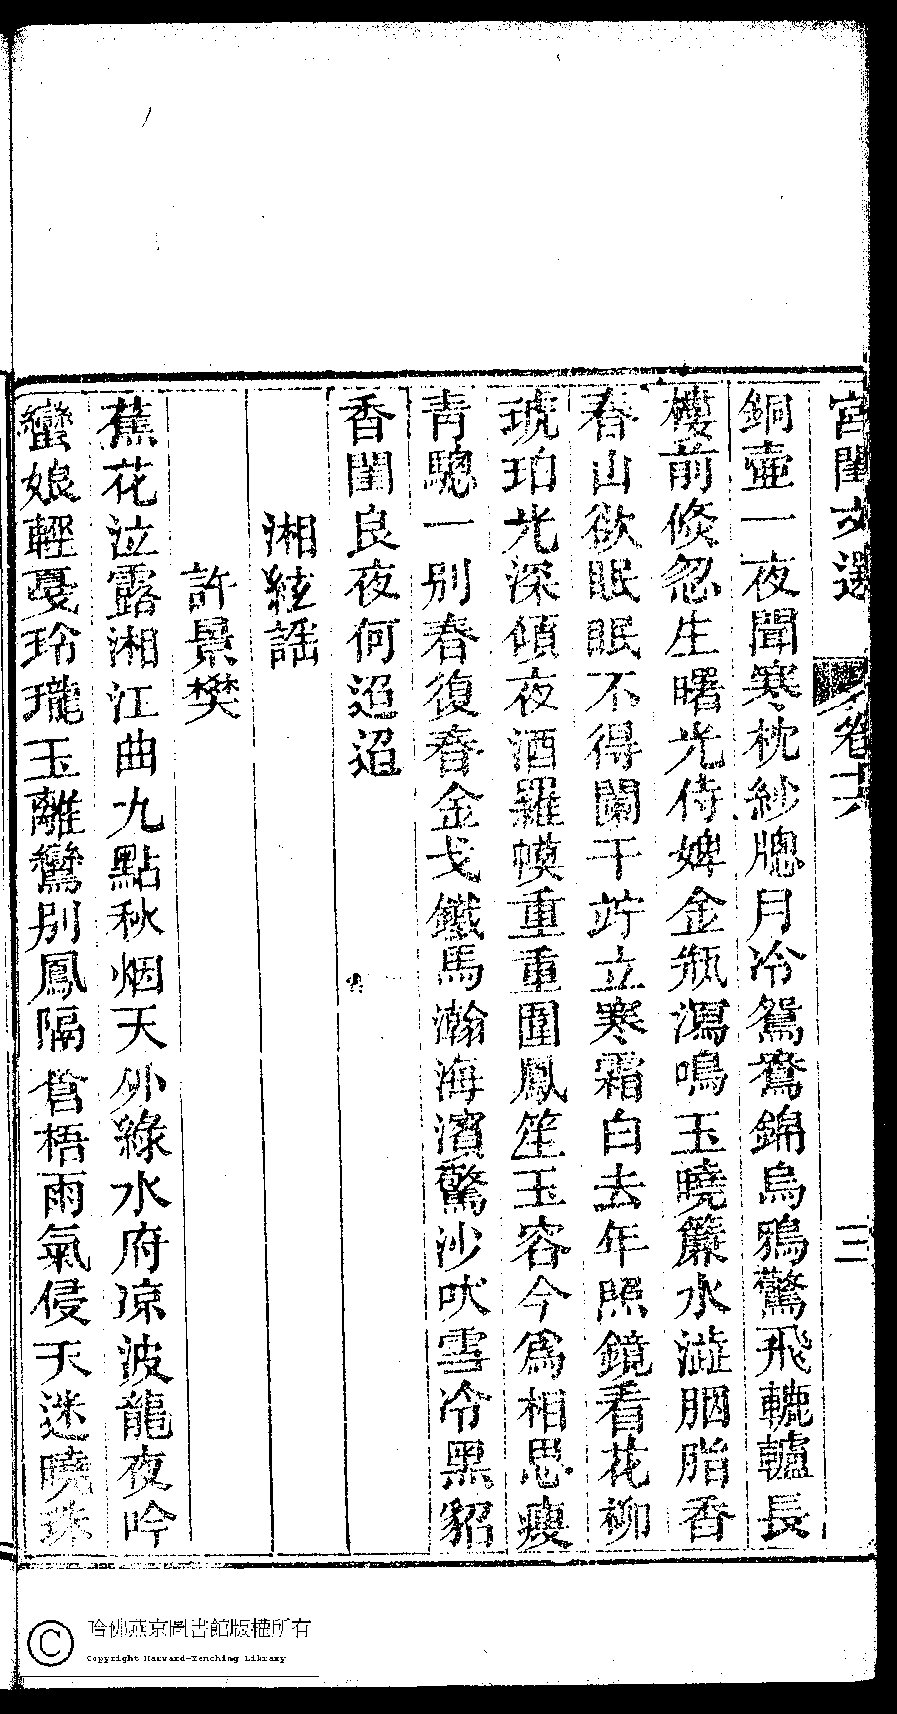 宮閨文選 卷十六 三
銅壺一夜聞寒枕紗牕月冷鴛鴦錦烏鴉驚飛轆轤長
樓前倏忽生曙光侍婢金瓶瀉鳴玉曉簾水澁胭脂香
春山欲眠眠不得闌干竚立寒霜白去年照鏡看花柳
琥珀光深傾夜酒羅幙重重圍鳳笙玉容今爲相思瘦
青驄一別春復春金戈鐵馬瀚海濱驚沙吹雪冷黑貂
香閨良夜何迢迢
湘絃謡
許景樊
蕉花泣露湘江曲九點秋烟天外綠水府凉波龍夜吟
蠻娘輕戞玲瓏玉離鸞別鳳隔倉梧雨氣侵天迷曉珠
哈佛燕京圖書館版權所有
Copyright Harvard-Yenching Library